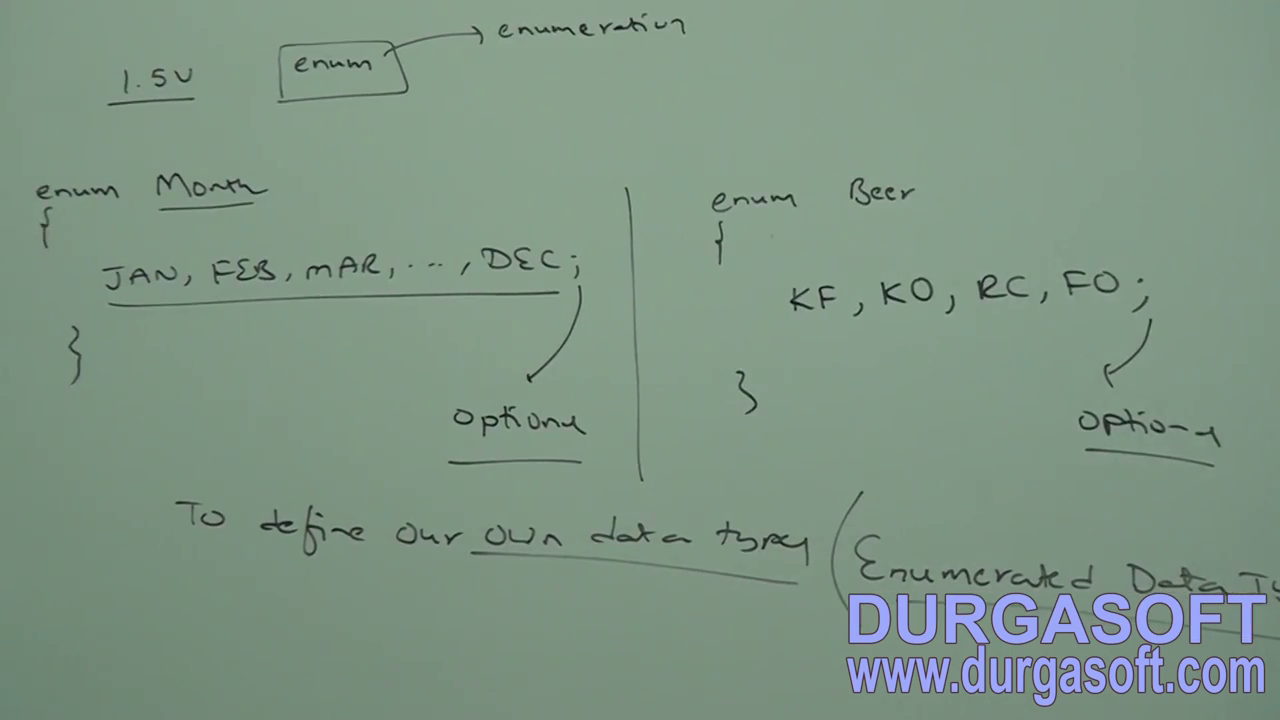 1.5V enum → enumeration
enum Month
{
JAN, FEB, MAR, ..., DEC;
}
optional
enum Beer
{
KF, KO, RC, FO;
}
optional
To define our own data types (Enumerated Data Ty
DURGASOFT
www.durgasoft.com